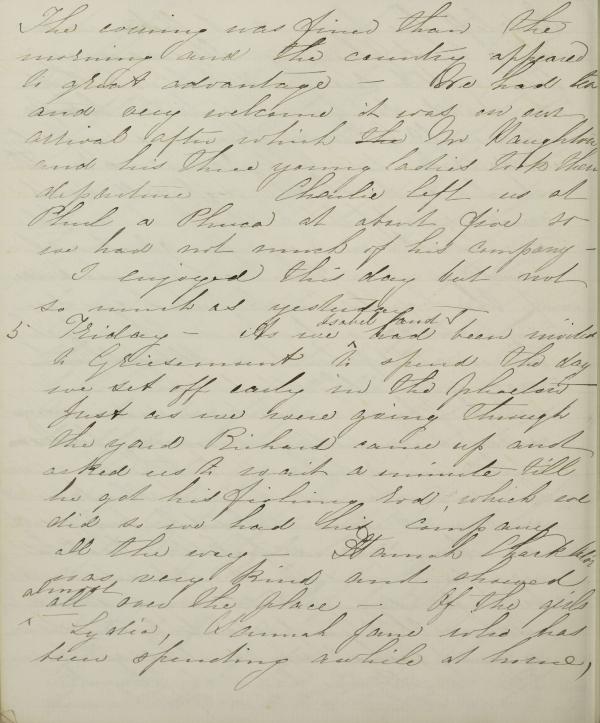 The evening was finer than the
morning and the country appeared
to great advantage — We had tea
and very welcome it was on our
arrival after which the Mr Haughton
and his three young ladies took their
departure Charlie left us at
Phul a Phuca at about five so
we had not much of his company —
I enjoyed this day but not
so much as yesterday
Isabel and I
5 Friday — As we had been invited
to Griesemount to spend the day
we set off early in the phaeton
Just as we were going through
the yard Richard came up and
asked us to wait a minute till
he got his fishing rod, which we
did so we had his company
all the way — Hannah
was very kind and showed
almost
all over the place — Of the girls
Lydia, Hannah Jane who has
been spending awhile at home,